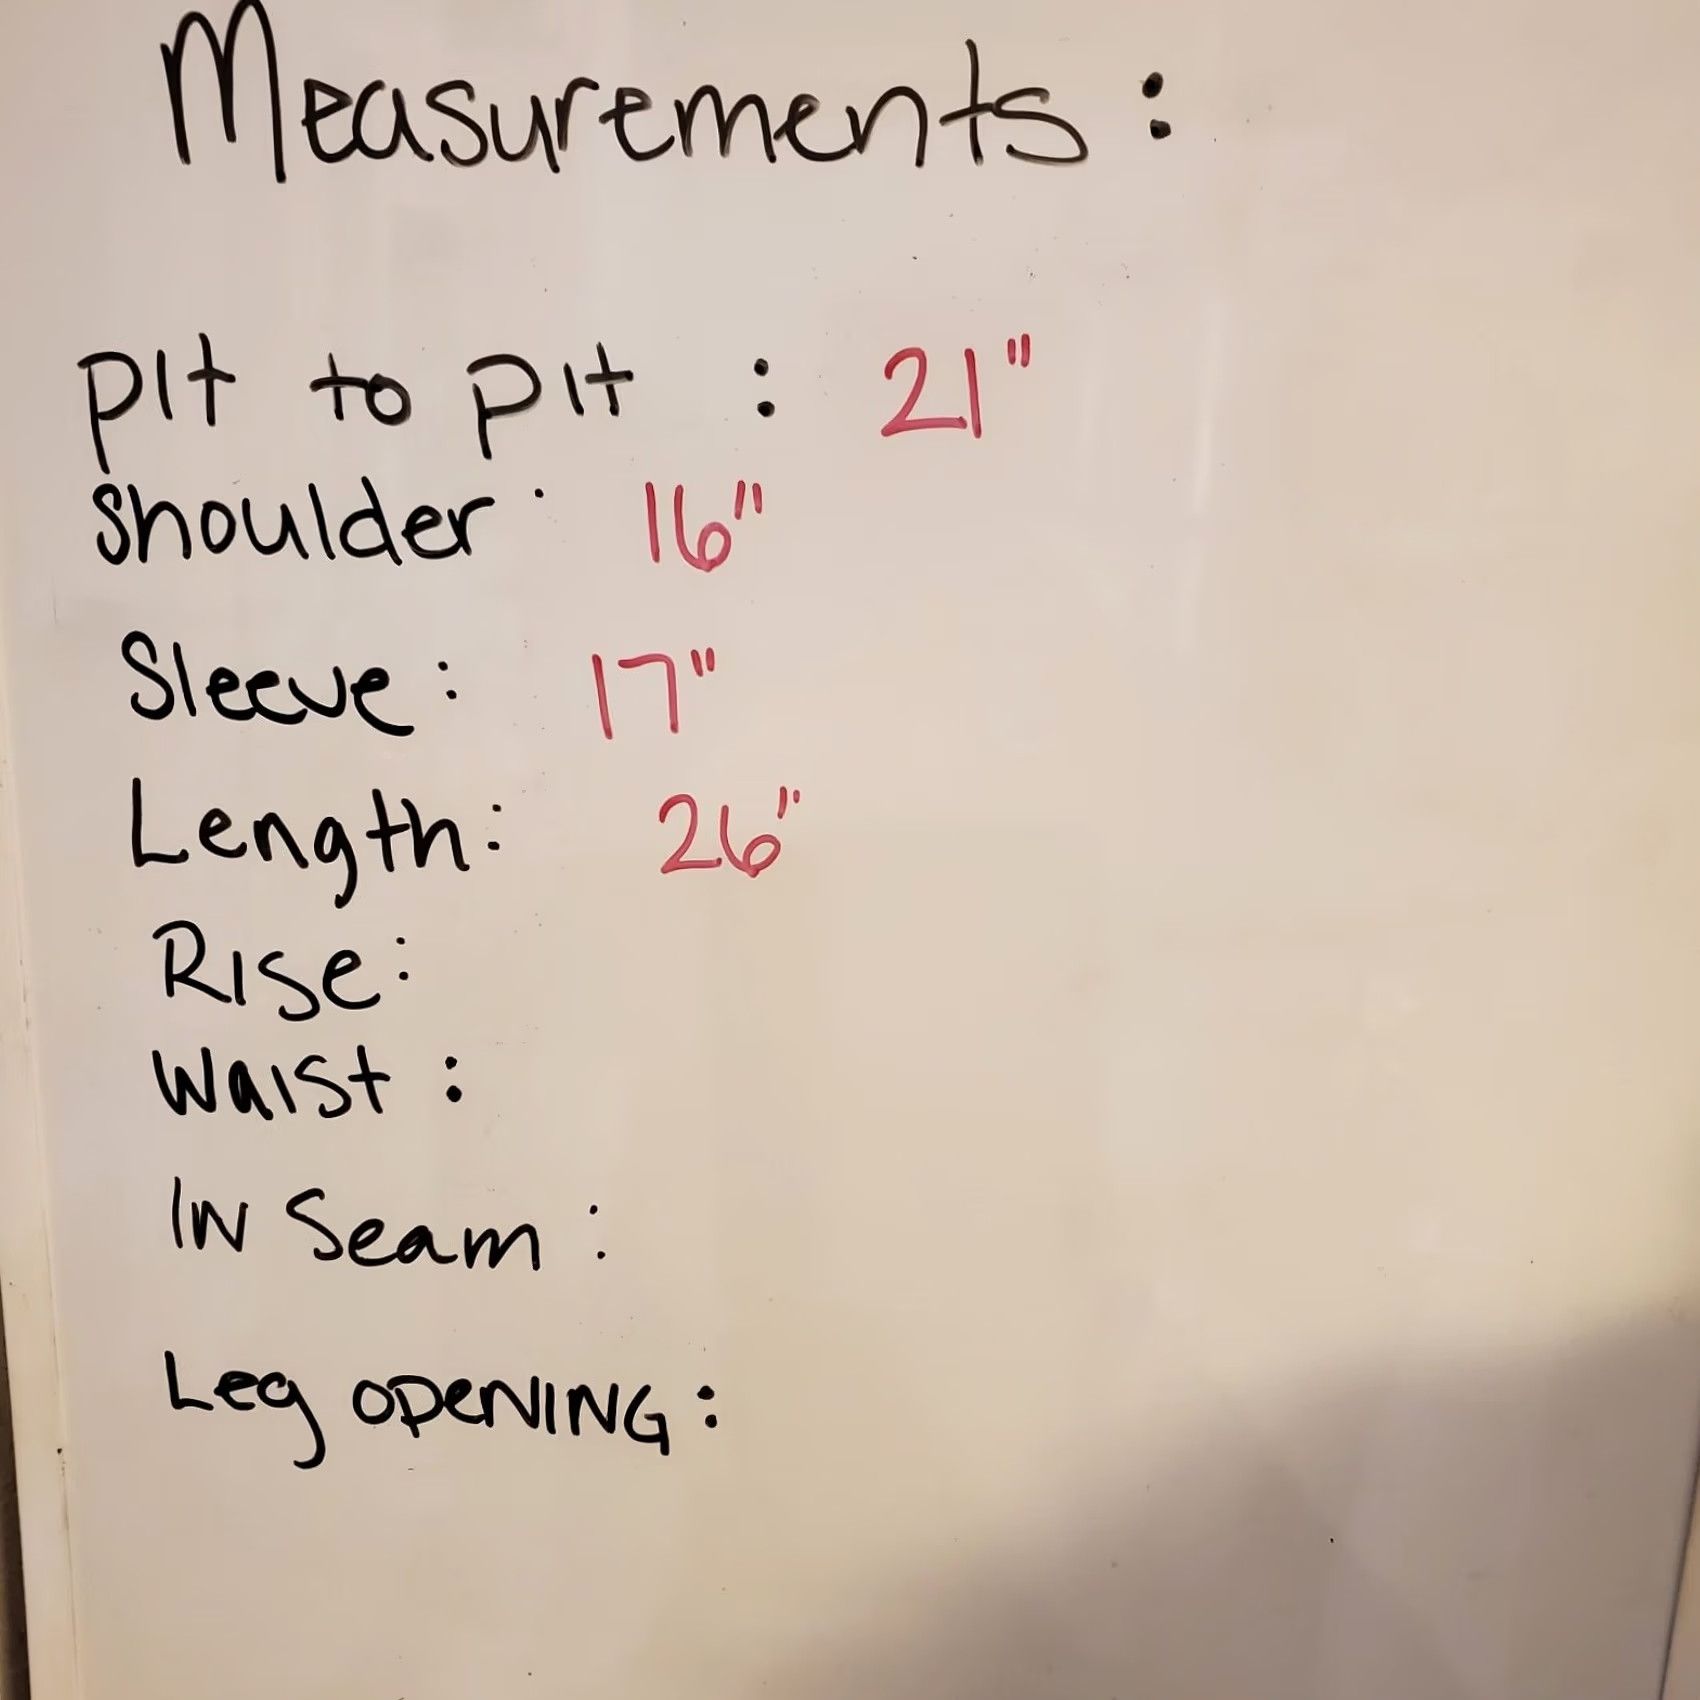 Measurements:
pit to pit : 21"
Shoulder: 16"
Sleeve: 17"
Length: 26"
Rise:
Waist:
IN Seam:
Leg OPENING: